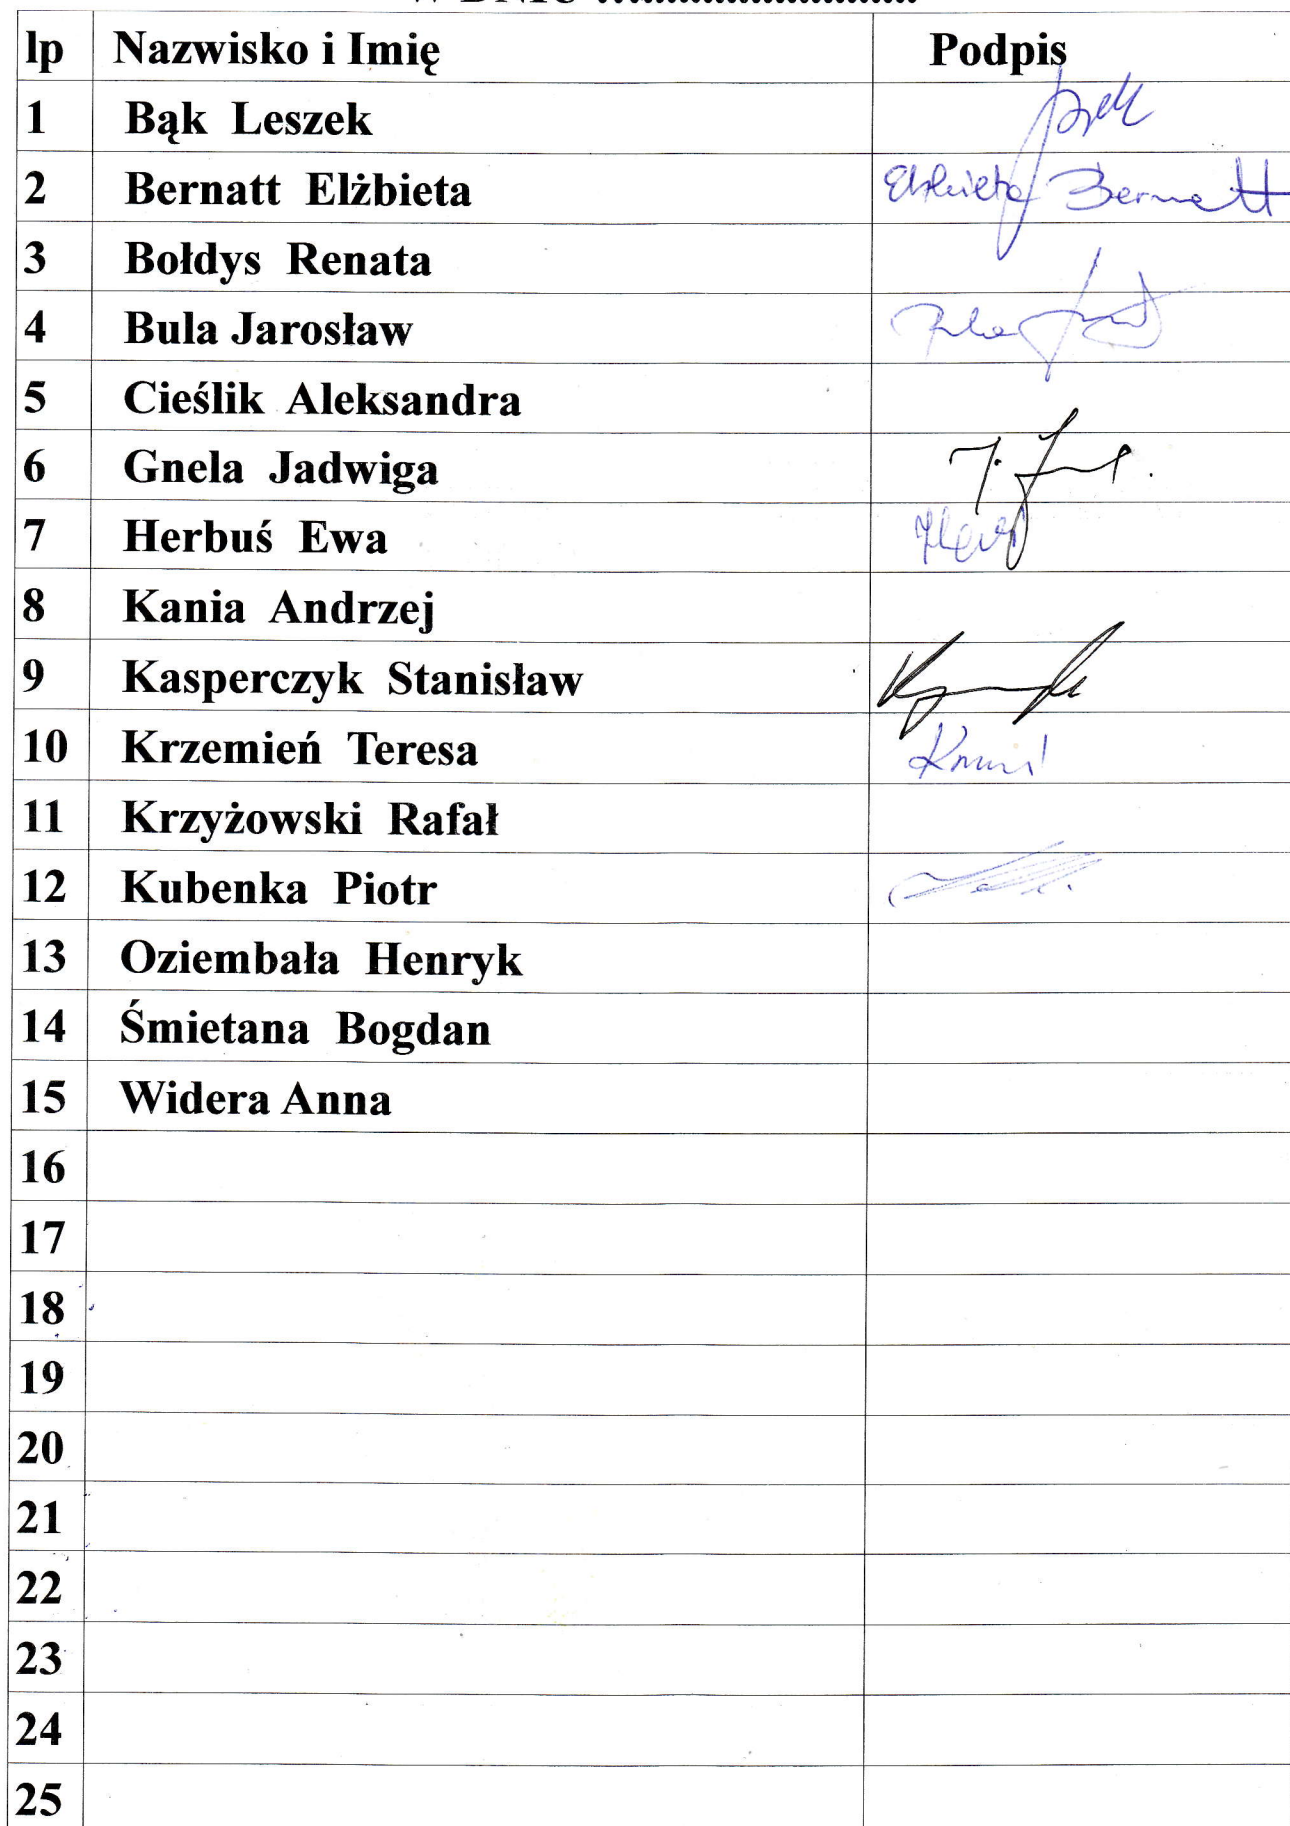 W DNIU ..............................
lp Nazwisko i Imię Podpis
1 Bąk Leszek
2 Bernatt Elżbieta Elżbieta Bernatt
3 Bołdys Renata
4 Bula Jarosław
5 Cieślik Aleksandra
6 Gnela Jadwiga
7 Herbuś Ewa
8 Kania Andrzej
9 Kasperczyk Stanisław
10 Krzemień Teresa
11 Krzyżowski Rafał
12 Kubenka Piotr
13 Oziembała Henryk
14 Śmietana Bogdan
15 Widera Anna
16
17
18
19
20
21
22
23
24
25